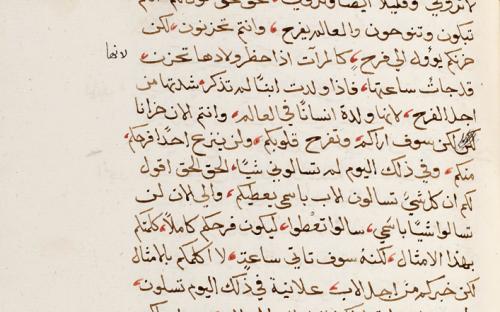 تبكون وتنوحون والعالم يفرح، وانتم تحزنون لكن
حزنكم يوؤله الي فرح، كالمرآت اذا حظر ولادها تحزن
لانها
قد جات ساعتها، فاذا ولدت ابنًا لم تذكر شدتها من
اجل الفرح، لانها ولدة انسانًا في العالم، وانتم الان حزانا
لكن سوف اراكم، وتفرح قلوبكم، ولن ينزع احدًا فرحكم
منكم، وفي ذلك اليوم لم تسالوني شيًا، الحق الحق اقول
لكم ان كل شي تسالون الاب باسمي يعطيكم، والي الان لن
تسالوا شيًا باسمي، سالوا تعُطوا، ليكون فرحكم كاملاً، كلمتكم
بهذا الامثال، لكنه سوف تاتي ساعت، لا اكلمكم بالامثال
لكن خبركم من اجل الاب، علانية في ذلك اليوم تسلون،